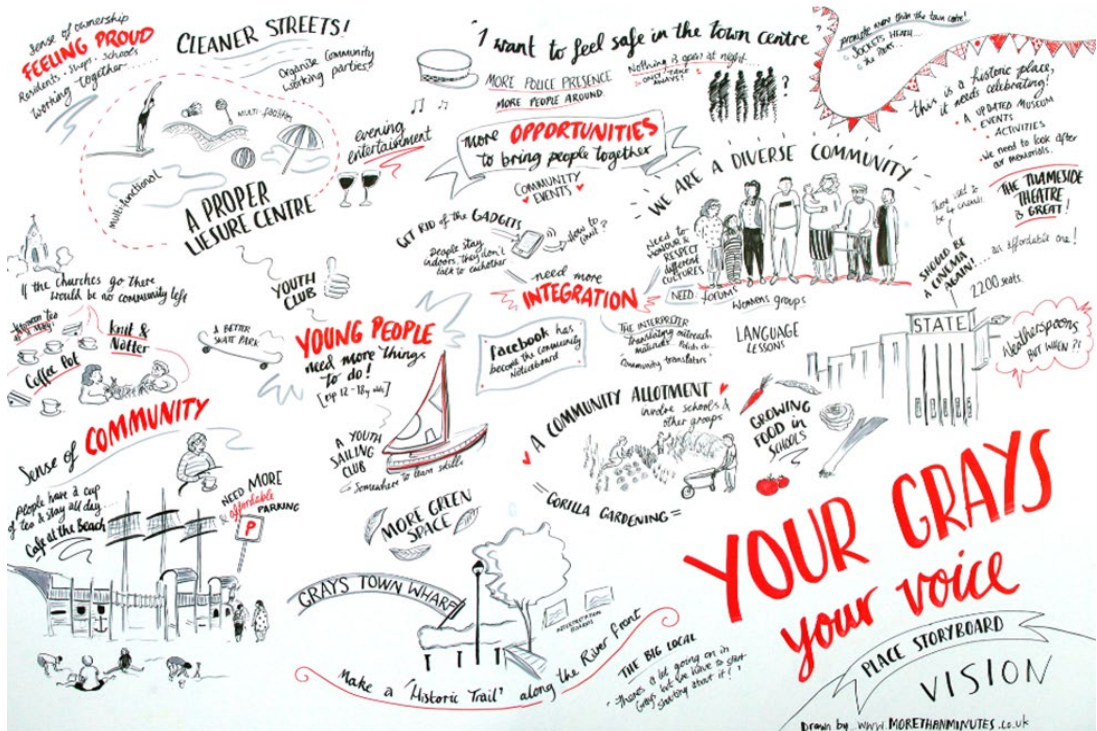 Sense of ownership
FEELING PROUD
Residents · Shops · Schools
Working together
CLEANER STREETS!
Organise Community
working parties?
MULTI-facilities
Multifunctional
A PROPER
LIESURE CENTRE
evening
entertainment
'I want to feel safe in the town centre'
MORE POLICE PRESENCE
MORE PEOPLE AROUND
Nothing is open at night
ONLY TAKE
AWAYS!
?
more OPPORTUNITIES
to bring people together
COMMUNITY
EVENTS
promote more than the town centre!
SOCKETS HEATH...
this is a historic place,
it needs celebrating!
A UPDATED MUSEUM
EVENTS
ACTIVITIES
We need to look after
our memorials.
THE THAMESIDE
THEATRE
IS GREAT!
WE ARE A DIVERSE COMMUNITY
GET RID of the GADGETS
People stay
indoors, they don't
talk to eachother
How to
limit?
Need to
HONOUR &
RESPECT
different
CULTURES
NEED
forums
Womens groups
LANGUAGE
LESSONS
need more
INTEGRATION
THE INTERPRETER
translating outreach
materials
Polish etc
"Community translators"
There used to
be 4 cinemas
SHOULD BE
A CINEMA
AGAIN!
... an affordable one!
2200 seats
STATE
Weatherspoons
BUT WHEN?!
If the churches go there
would be no community left
YOUTH
CLUB
Knit &
Natter
Coffee Pot
A BETTER
SKATE PARK
YOUNG PEOPLE
need more things
to do!
[esp 12-18 yr olds]
facebook has
become the community
Noticeboard
A YOUTH
SAILING
CLUB
Somewhere to learn skills
A COMMUNITY ALLOTMENT
involve schools &
other groups
GROWING
FOOD in
SCHOOLS
=GORILLA GARDENING=
Sense of COMMUNITY
People have a cup
of tea & stay all day
Cafe at the Beach
NEED MORE
affordable
PARKING
P
MORE GREEN
SPACE
GRAYS TOWN WHARF
INTERPRETATION
BOARDS
Make a 'Historic Trail' along the River Front
THE BIG LOCAL
"There's a lot going on in
Grays but we have to start
shouting about it!"
YOUR GRAYS
your voice
PLACE STORYBOARD
VISION
Drawn by www.MORETHANMINUTES.co.uk